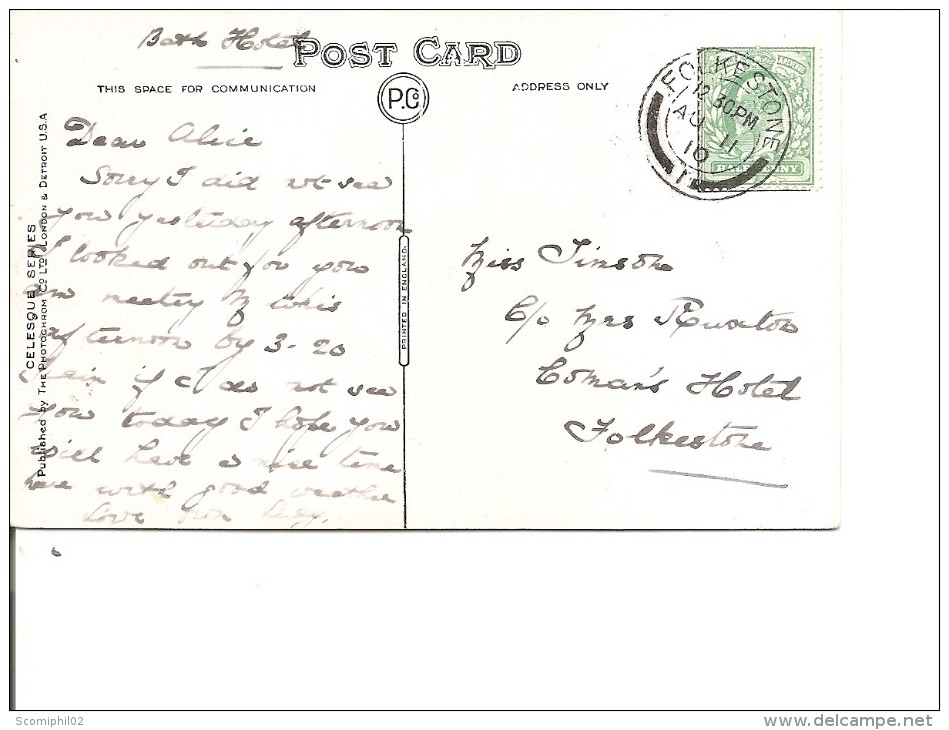 Bath Hotel
POST CARD
THIS SPACE FOR COMMUNICATION
P.Co
ADDRESS ONLY
FOLKESTONE
12.30PM
AU 11
10
HALFPENNY
CELESQUE SERIES
Published by THE PHOTOCHROM CO LTD LONDON & DETROIT U.S.A
PRINTED IN ENGLAND.
Dear Alice
Sorry I did not see
you yesterday afternoon
I looked out for you
am this
afternoon by 3-20
train if I do not see
you today I hope you
will have a nice time
here with good weather
Love from
Miss Timson
C/o Mrs Ruxton
Coman's Hotel
Folkestone
Scomiphil02
www.delcampe.net